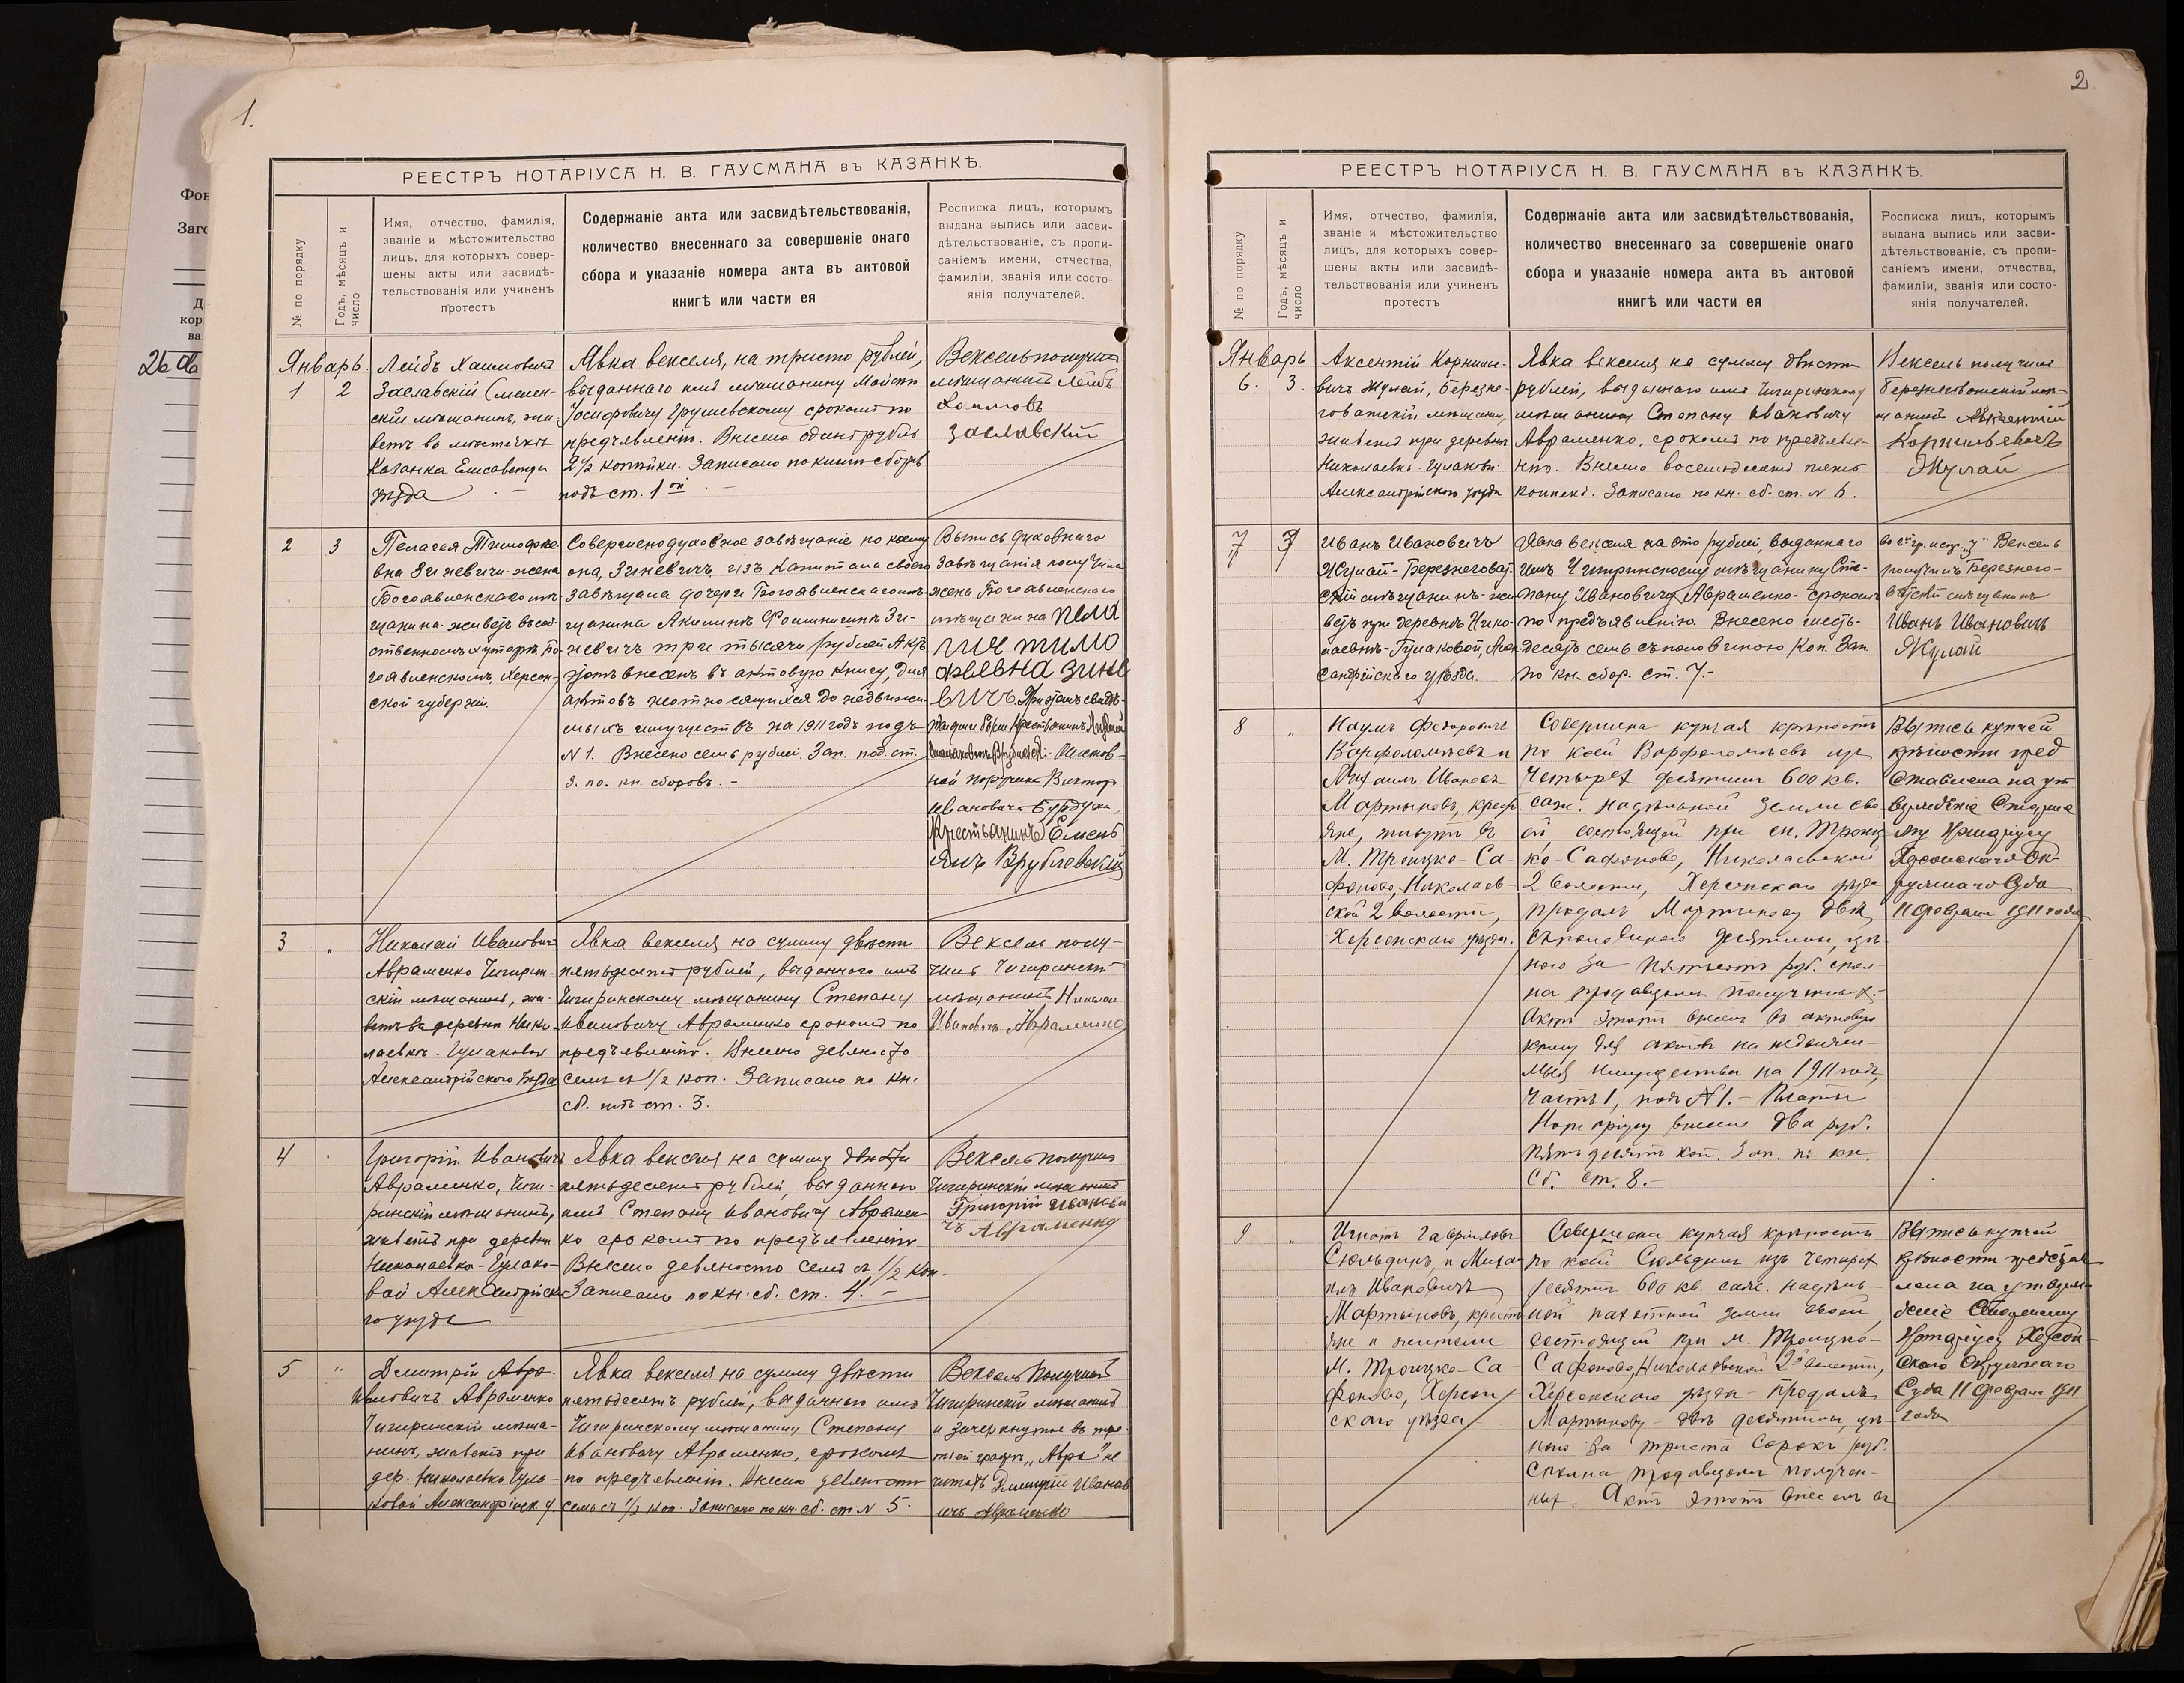 1.
РЕЕСТРЪ НОТАРІУСА Н. В. ГАУСМАНА въ КАЗАНКѢ.
№ по порядку
Годъ, мѣсяцъ и
число
Имя, отчество, фамилія,
званіе и мѣстожительство
лицъ, для которыхъ совер-
шены акты или засвидѣ-
тельствованія или учиненъ
протестъ
Содержаніе акта или засвидѣтельствованія,
количество внесеннаго за совершеніе онаго
сбора и указаніе номера акта въ актовой
книгѣ или части ея
Росписка лицъ, которымъ
выдана выпись или засви-
дѣтельствованіе, съ пропи-
саніемъ имени, отчества,
фамиліи, званія или состо-
янія получателей.
Январь.
1 2
Лейбъ Хаимовичъ
Заславскій
скій мѣщанинъ, жи-
ветъ въ мѣстечкѣ
Казанка Елисаветгр
уѣзда
Явка векселя, на триста рублей,
выданнаго имъ мѣщанину
Іосифовичу Грушевскому срокомъ по
предъявленію. Внесено одинъ рубль
2½ копѣйки. Записано по книгѣ сборовъ
подъ ст. 1ой
Вексель получилъ
мѣщанинъ Лейбъ
Хаимовъ
Заславскій
2 3
Пелагея Тимофѣе-
вна Зиневичъ жена
Богоявленскаго мѣ-
щанина живетъ въ соб-
ственномъ хуторѣ, Бо-
гоявленскомъ, Херсон-
ской губерніи.
Совершено духовное завѣщаніе по коему
она, Зиневичъ, изъ капитала своего
завѣщала дочери Богоявленскаго мѣ-
щанина Акилинѣ Зи-
невичъ три тысячи рублей Актъ
этотъ внесенъ въ актовую книгу, для
актовъ неотносящихся до недвижи-
мыхъ имуществъ на 1911 годъ подъ
N 1. Внесено семь рублей. Зап. под. ст.
3. по. кн. сборовъ. -
Выпись духовнаго
завѣщанія получила
жена Богоявленскаго
мѣщанина Пела
гия тимо
фѣевна зине
вичъ
Викторъ
Ивановичъ
Крестьянинъ
Врублевскій
3 "
Николай Ивановичъ
Авраменко Чигирин-
скій мѣщанинъ, жи-
ветъ въ деревни Нико-
лаевкѣ-Гулаковой
Александрійского Уѣзда
Явка векселя на сумму двѣсти
пятьдесятъ рублей, выданнаго имъ
Чигиринскому мѣщанину Степану
Ивановичу Авраменко срокомъ по
предъявленію. Внесено девяносто
семь съ 1/2 коп. Записано по кн.
сб. ст. 3.
Вексель полу-
чилъ Чигиринскій
мѣщанинъ Николай
Ивановичъ Авраменко
4
Григорій Ивановичъ
Авраменко, Чиги-
ринскій мѣщанинъ,
живетъ при деревни
Николаевка-Гулако-
вой Александрійска
го уѣзда
Явка векселя на сумму двѣсти
пятьдесятъ рублей, выданнаго
имъ Степану Ивановичу Авраме-
ко срокомъ по предъявленію
Внесено девяносто семь съ 1/2 коп.
Записано по кн. сб. ст. 4. -
Вексель получилъ
Чигиринскій мѣщанинъ
Григорій Иванови
чъ Авраменко
5 "
Дмитрій Авра-
Ивановичъ Авраменко
Чигиринскій мѣща-
нинъ, живетъ при
дер. Николаевка Гула-
ковой Александрійск. у.
Явка векселя на сумму двѣсти
пятьдесятъ рублей, выданнаго имъ
Чигиринскому мѣщанину Степану
Ивановичу Авраменко, срокомъ
по предъявлен. Внесено девяносто
семь съ 1/2 коп. Записано по кн. сб. ст. N 5.
Вексель получилъ
Чигиринскій мѣщанинъ
и зачеркнутое въ тре-
тьей графѣ „Авра" не
читать Дмитрій Иванов
ичъ Авраменко
2
РЕЕСТРЪ НОТАРІУСА Н. В. ГАУСМАНА въ КАЗАНКѢ.
№ по порядку
Годъ, мѣсяцъ и
число
Имя, отчество, фамилія,
званіе и мѣстожительство
лицъ, для которыхъ совер-
шены акты или засвидѣ-
тельствованія или учиненъ
протестъ
Содержаніе акта или засвидѣтельствованія,
количество внесеннаго за совершеніе онаго
сбора и указаніе номера акта въ актовой
книгѣ или части ея
Росписка лицъ, которымъ
выдана выпись или засви-
дѣтельствованіе, съ пропи-
саніемъ имени, отчества,
фамиліи, званія или состо-
янія получателей.
Январь
6. 3.
Аксентій Корнилье-
вичъ Жулай, Березне-
говатскій мѣщанинъ,
живетъ при деревнѣ
Николаевкѣ-Гулаковой
Александрійскаго уѣзда
Явка векселя на сумму двѣсти
рублей, выданнаго имъ Чигиринскому
мѣщанину Степану Ивановичу
Авраменко, срокомъ по предъявле-
нію. Внесено восемьдесятъ пять
копѣекъ. Записано по кн. сб. ст. N 6.
Вексель получилъ
Березнеговатскій мѣ-
щанинъ Аксентій
Корнильевичъ
Жулай
7 3
Иванъ Ивановичъ
Жулай-Березнеговат-
скій мѣщанинъ-жи
ветъ при деревнѣ Нико-
лаевкѣ-Гулаковой, Алек-
сандрійскаго уѣзда.
Явка векселя на сто рублей, выданнаго
имъ Чигиринскому мѣщанину Сте-
пану Ивановичу Авраменко-срокомъ
по предъявленію. Внесено шесть-
десятъ семь съ половиною коп. Зап.
по кн. сбор. ст. 7.-
Вексель
получилъ Березнего-
ватскій мѣщанинъ
Иванъ Ивановичъ
Жулай
8 "
Наумъ Федоровичъ
Варфоломѣевъ и
Михаилъ Ивановъ
Мартыновъ, крест
яне, живутъ въ
М. Троицко-Са-
фоново, Николаев-
ской 2 волости,
Херсонскаго уѣзда.
Совершена купчая крѣпость
по коей Варфоломѣевъ изъ
четырех десятинъ 600 кв.
саж. надѣльной земли сво
ей состоящей при сл. Троиц
ко-Сафоново, Николаевской
2 волости, Херсонскаго уѣзда
продалъ Мартынову двѣ
съ половиною десятины, цѣ-
ною за пятьсотъ руб. спол-
на продавцомъ полученных.-
Актъ этотъ внесенъ въ актовую
книгу для актовъ на недвижи-
мыя имущества на 1911 годъ,
часть 1, подъ N 1.- Платы
Нотаріусу внесено два руб.
пятьдесятъ коп. Зап. по кн.
сб. ст. 8.-
Выпись купчей
крѣпости пред
ставлена на ут
вержденіе Старше
му Нотаріусу
Херсонскаго Ок-
ружнаго Суда
11 февраля 1911 года
9 "
Игнатъ Гавриловъ
Сюльдинъ и Миха-
илъ Ивановичъ
Мартыновъ, кресть
яне и жители
М. Троицко-Са-
фоново, Херсон
скаго уѣзда
Совершена купчая крѣпость
по коей Сюльдинъ изъ четырех
десятинъ 600 кв. саж. надѣль-
ной пахатной земли своей,
состоящей при м. Троицко-
Сафоново, Николаевской 2й волости,
Херсонскаго уѣзда-продалъ
Мартынову-двѣ десятины, цѣ-
ною за триста сорокъ руб.
сполна продавцомъ получен-
ных. Актъ этотъ внесенъ въ
Выпись купчей
крѣпости представ
лена на утверж-
деніе Старшему
Нотаріусу Херсон-
скаго Окружнаго
Суда 11 февраля 1911
года